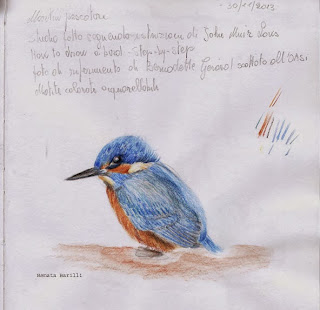 30/11/2013
Martin pescatore
studio fatto seguendo istruzioni di John Muir Laws
How to draw a bird - step-by-step
foto di riferimento di Bernadette Gerard scattata all'OASI
Matite colorate acquarellabili
Renata Barilli